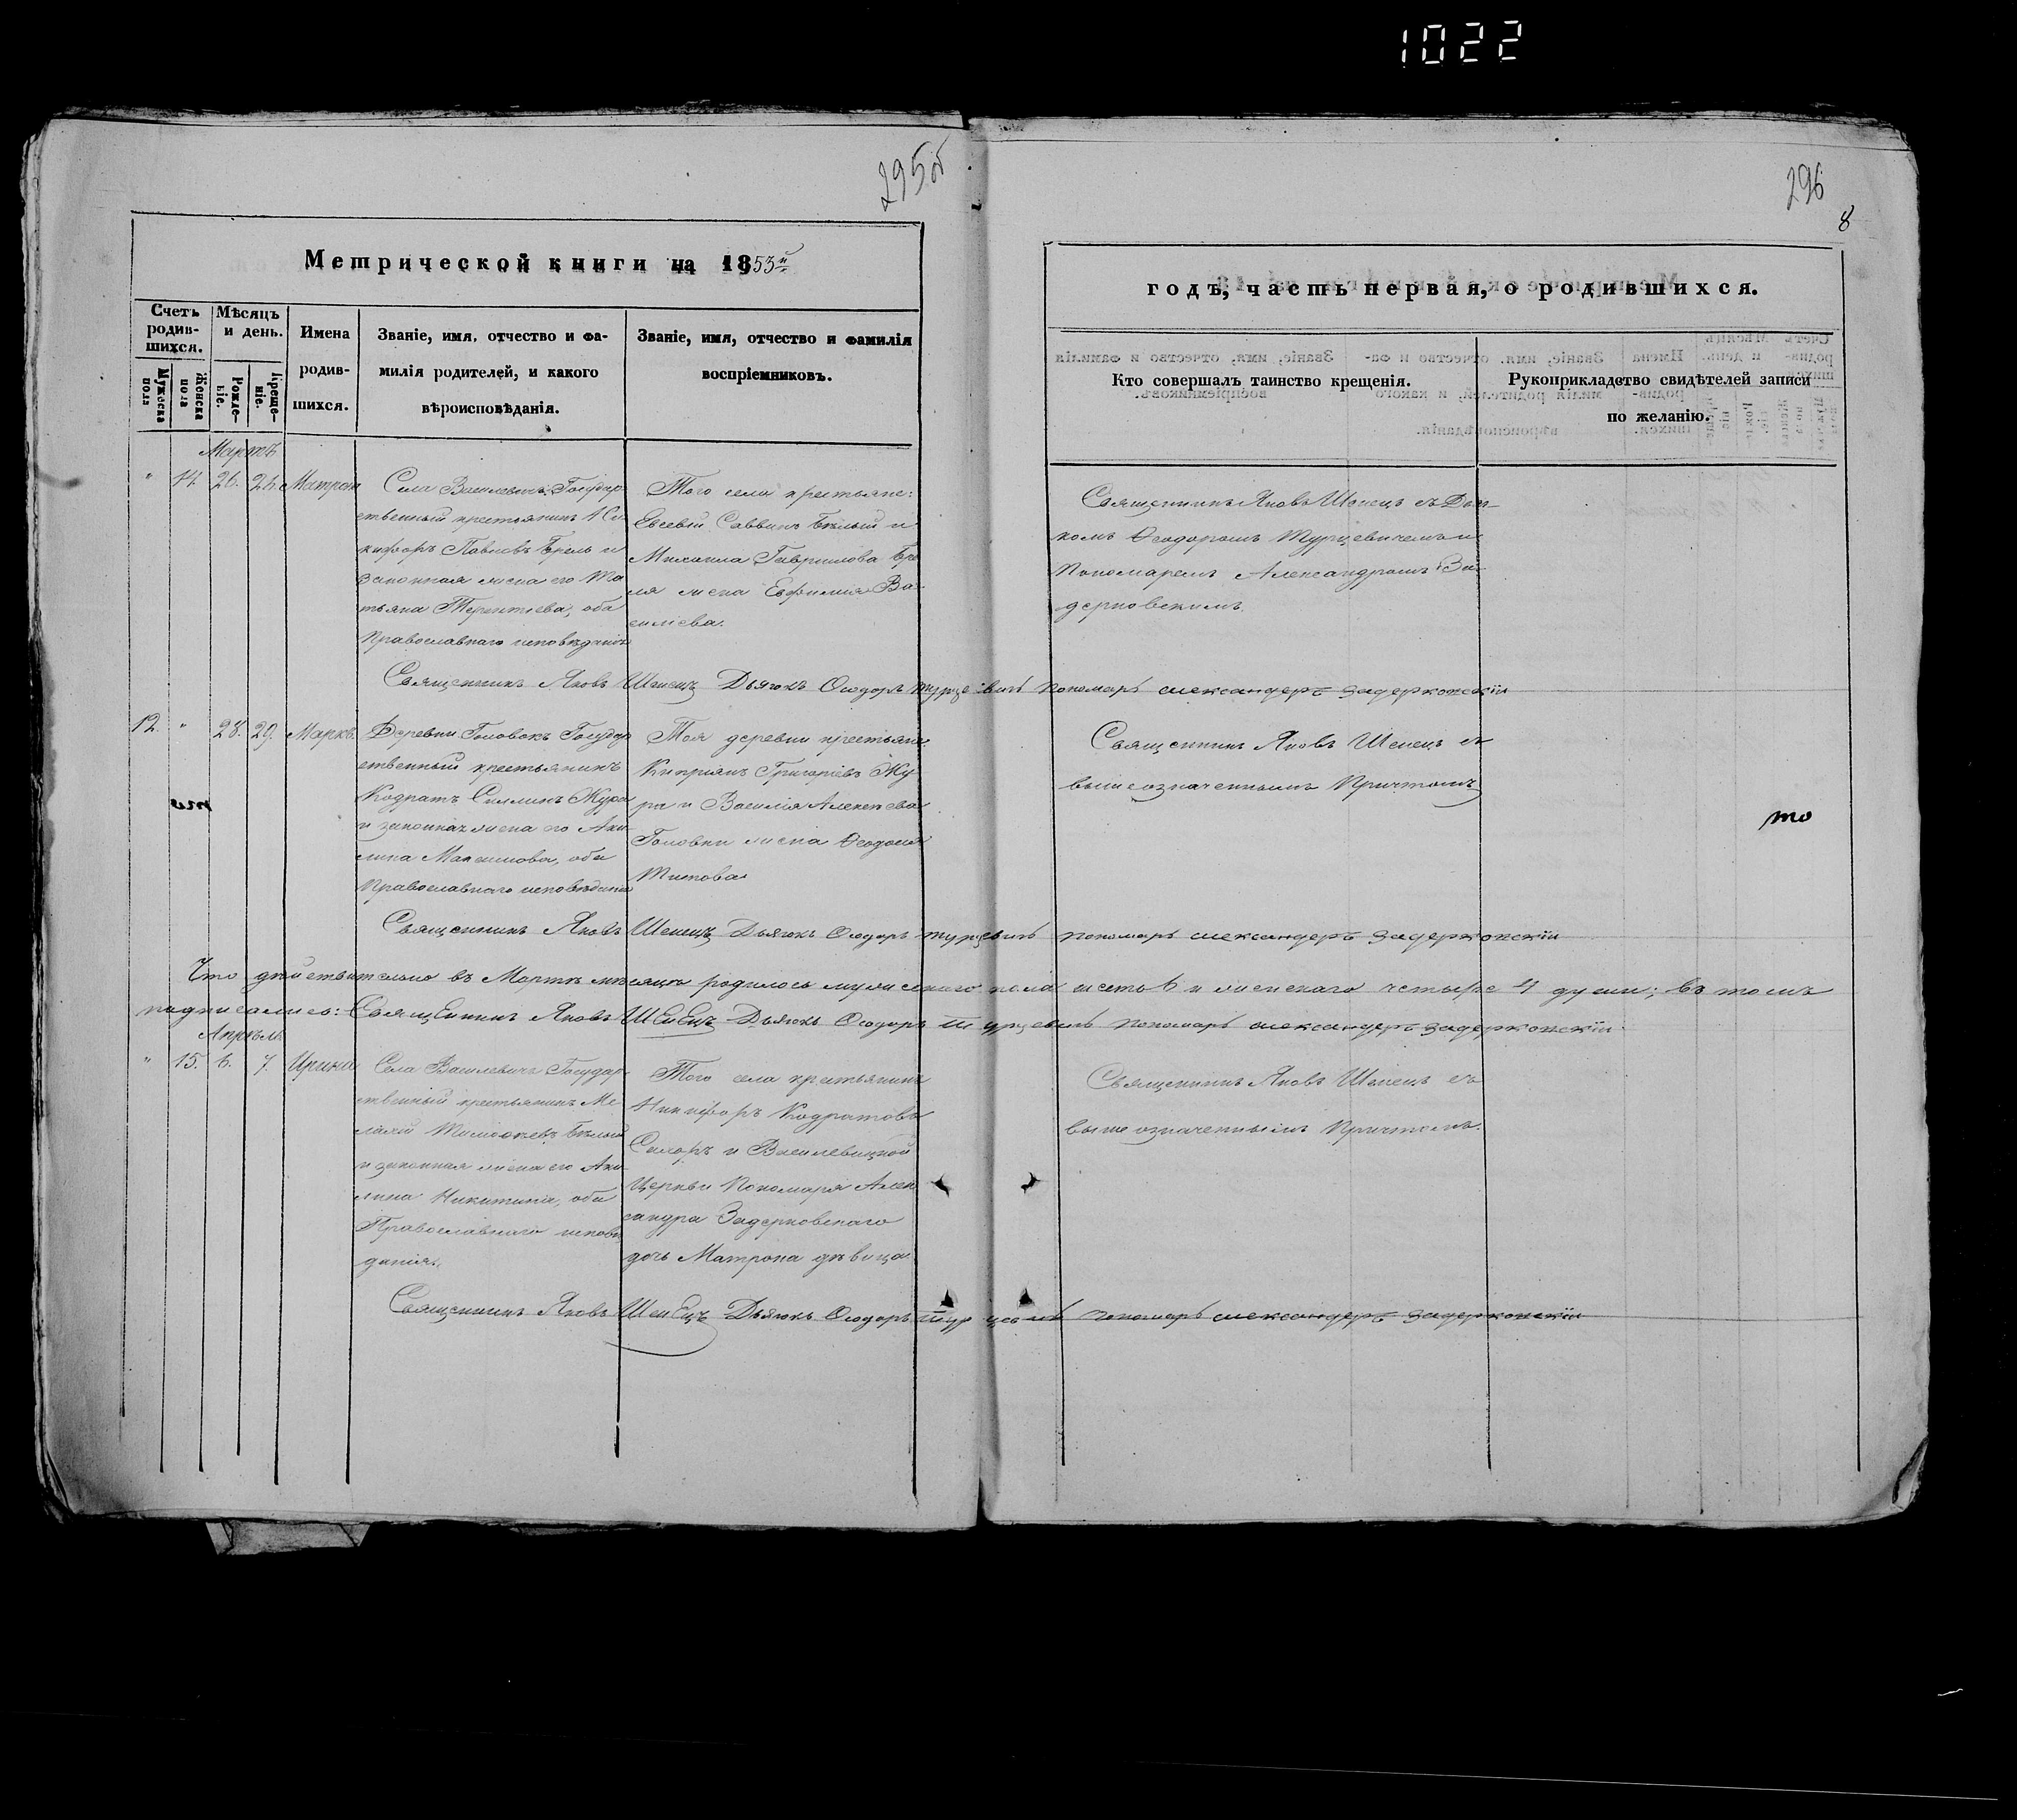 1022
295об
296
8
Метрической книги на 1853й
годъ, часть первая, о родившихся.
Счетъ родив-шихся.
Мѣсяцъ и день.
Имена родив-шихся.
Званіе, имя, отчество и фа-
милія родителей, и какого
вѣроисповѣданія.
Званіе, имя, отчество и фамилія
воспріемниковъ.
Мужеска пола
Женска пола
Рожде-ніе.
Креще-ніе.
Кто совершалъ таинство крещенія.
Рукоприкладство свидѣтелей записи
по желанію.
Мартъ
" 14. 26. 26. Матрона
Села Василевичъ Государ-
ственный крестьянинъ Ни-
кифоръ Павловъ и
законная жена его Та-
тьяна Терентіева, оба
Православнаго исповѣданія
Того села крестьяне:
Евсевій Саввинъ Бѣлый и
Михаила Гаврилова
ля жена Евфимія Ва-
силіева.
Священникъ Яковъ Шенецъ съ Дьяч-
комъ Ѳеодоромъ Турцевичемъ и
Пономаремъ Александромъ За-
дерковскимъ.
Священникъ Яковъ Шенецъ Дьячокъ Ѳеодоръ Турцевичъ Пономарь Александеръ Задерковскій
12. " 28. 29. Маркъ.
Деревни Головокъ Государ-
ственный крестьянинъ
Кодратъ Жура
и законная жена его Аки-
лина Максимова, оба
Православнаго исповѣданія
Тоя деревни крестьяне:
Кипріянъ Григоріевъ Жу-
ра и Василія Алексѣева
Головки жена Ѳеодосія
Титова.
Священникъ Яковъ Шенецъ съ
вышеозначеннымъ Причтомъ
то
Священникъ Яковъ Шенецъ Дьячокъ Ѳеодоръ Турцевичъ Пономарь Александеръ Задерковскій
Что дѣйствительно въ Мартѣ мѣсяцѣ родилось мужескаго пола шесть 6 и женскаго четыре 4 души; въ томъ
подписались: Священникъ Яковъ Шенецъ Дьячокъ Ѳеодоръ Турцевичъ Пономарь Александеръ Задерковскій
Апрѣль
" 15. 6. 7. Ирина
Села Василевичъ Государ-
ственный крестьянинъ Ме-
лѣтій Тимоѳеевъ Бѣлый
и законная жена его Аки-
лина Никитина, оба
Православнаго исповѣ-
данія.
Того села крестьянинъ
Никифоръ Кодратовъ
Сахоръ и Василевицкой
Церкви Пономаря Алек-
сандра Задерковскаго
дочь Матрона дѣвица.
Священникъ Яковъ Шенецъ съ
вышеозначеннымъ Причтомъ.
Священникъ Яковъ Шенецъ Дьячокъ Ѳеодоръ Турцевичъ Пономарь Александеръ Задерковскій